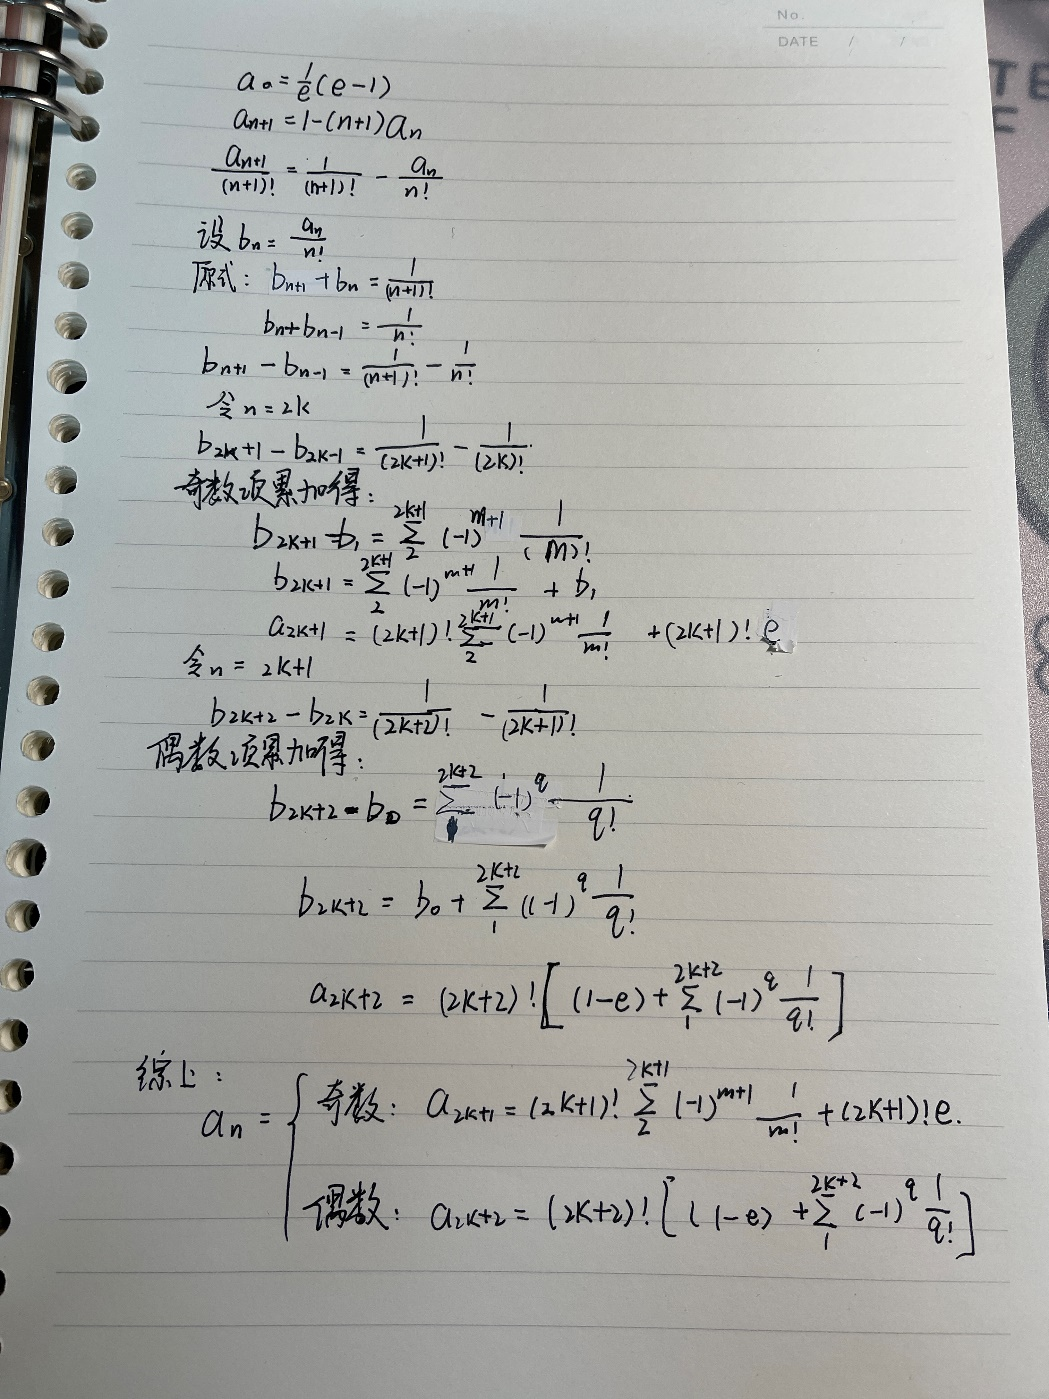 No.
DATE / /
a₀ = 1/e (e-1)
aₙ₊₁ = 1-(n+1)aₙ
aₙ₊₁/(n+1)! = 1/(n+1)! - aₙ/n!
设 bₙ = aₙ/n!
原式: bₙ₊₁ + bₙ = 1/(n+1)!
bₙ + bₙ₋₁ = 1/n!
bₙ₊₁ - bₙ₋₁ = 1/(n+1)! - 1/n!
令 n = 2k
b₂ₖ₊₁ - b₂ₖ₋₁ = 1/(2k+1)! - 1/(2k)!
奇数项累加得:
b₂ₖ₊₁ - b₁ = Σ₂^(2k+1) (-1)^(m+1) 1/(m)!
b₂ₖ₊₁ = Σ₂^(2k+1) (-1)^(m+1) 1/m! + b₁
a₂ₖ₊₁ = (2k+1)! Σ₂^(2k+1) (-1)^(m+1) 1/m! + (2k+1)! e
令 n = 2k+1
b₂ₖ₊₂ - b₂ₖ = 1/(2k+2)! - 1/(2k+1)!
偶数项累加得:
b₂ₖ₊₂ - b₀ = Σ₁^(2k+2) (-1)^q 1/q!
b₂ₖ₊₂ = b₀ + Σ₁^(2k+2) (-1)^q 1/q!
a₂ₖ₊₂ = (2k+2)! [(1-e) + Σ₁^(2k+2) (-1)^q 1/q!]
综上:
aₙ = { 奇数: a₂ₖ₊₁ = (2k+1)! Σ₂^(2k+1) (-1)^(m+1) 1/m! + (2k+1)! e.
偶数: a₂ₖ₊₂ = (2k+2)! [(1-e) + Σ₁^(2k+2) (-1)^q 1/q!]